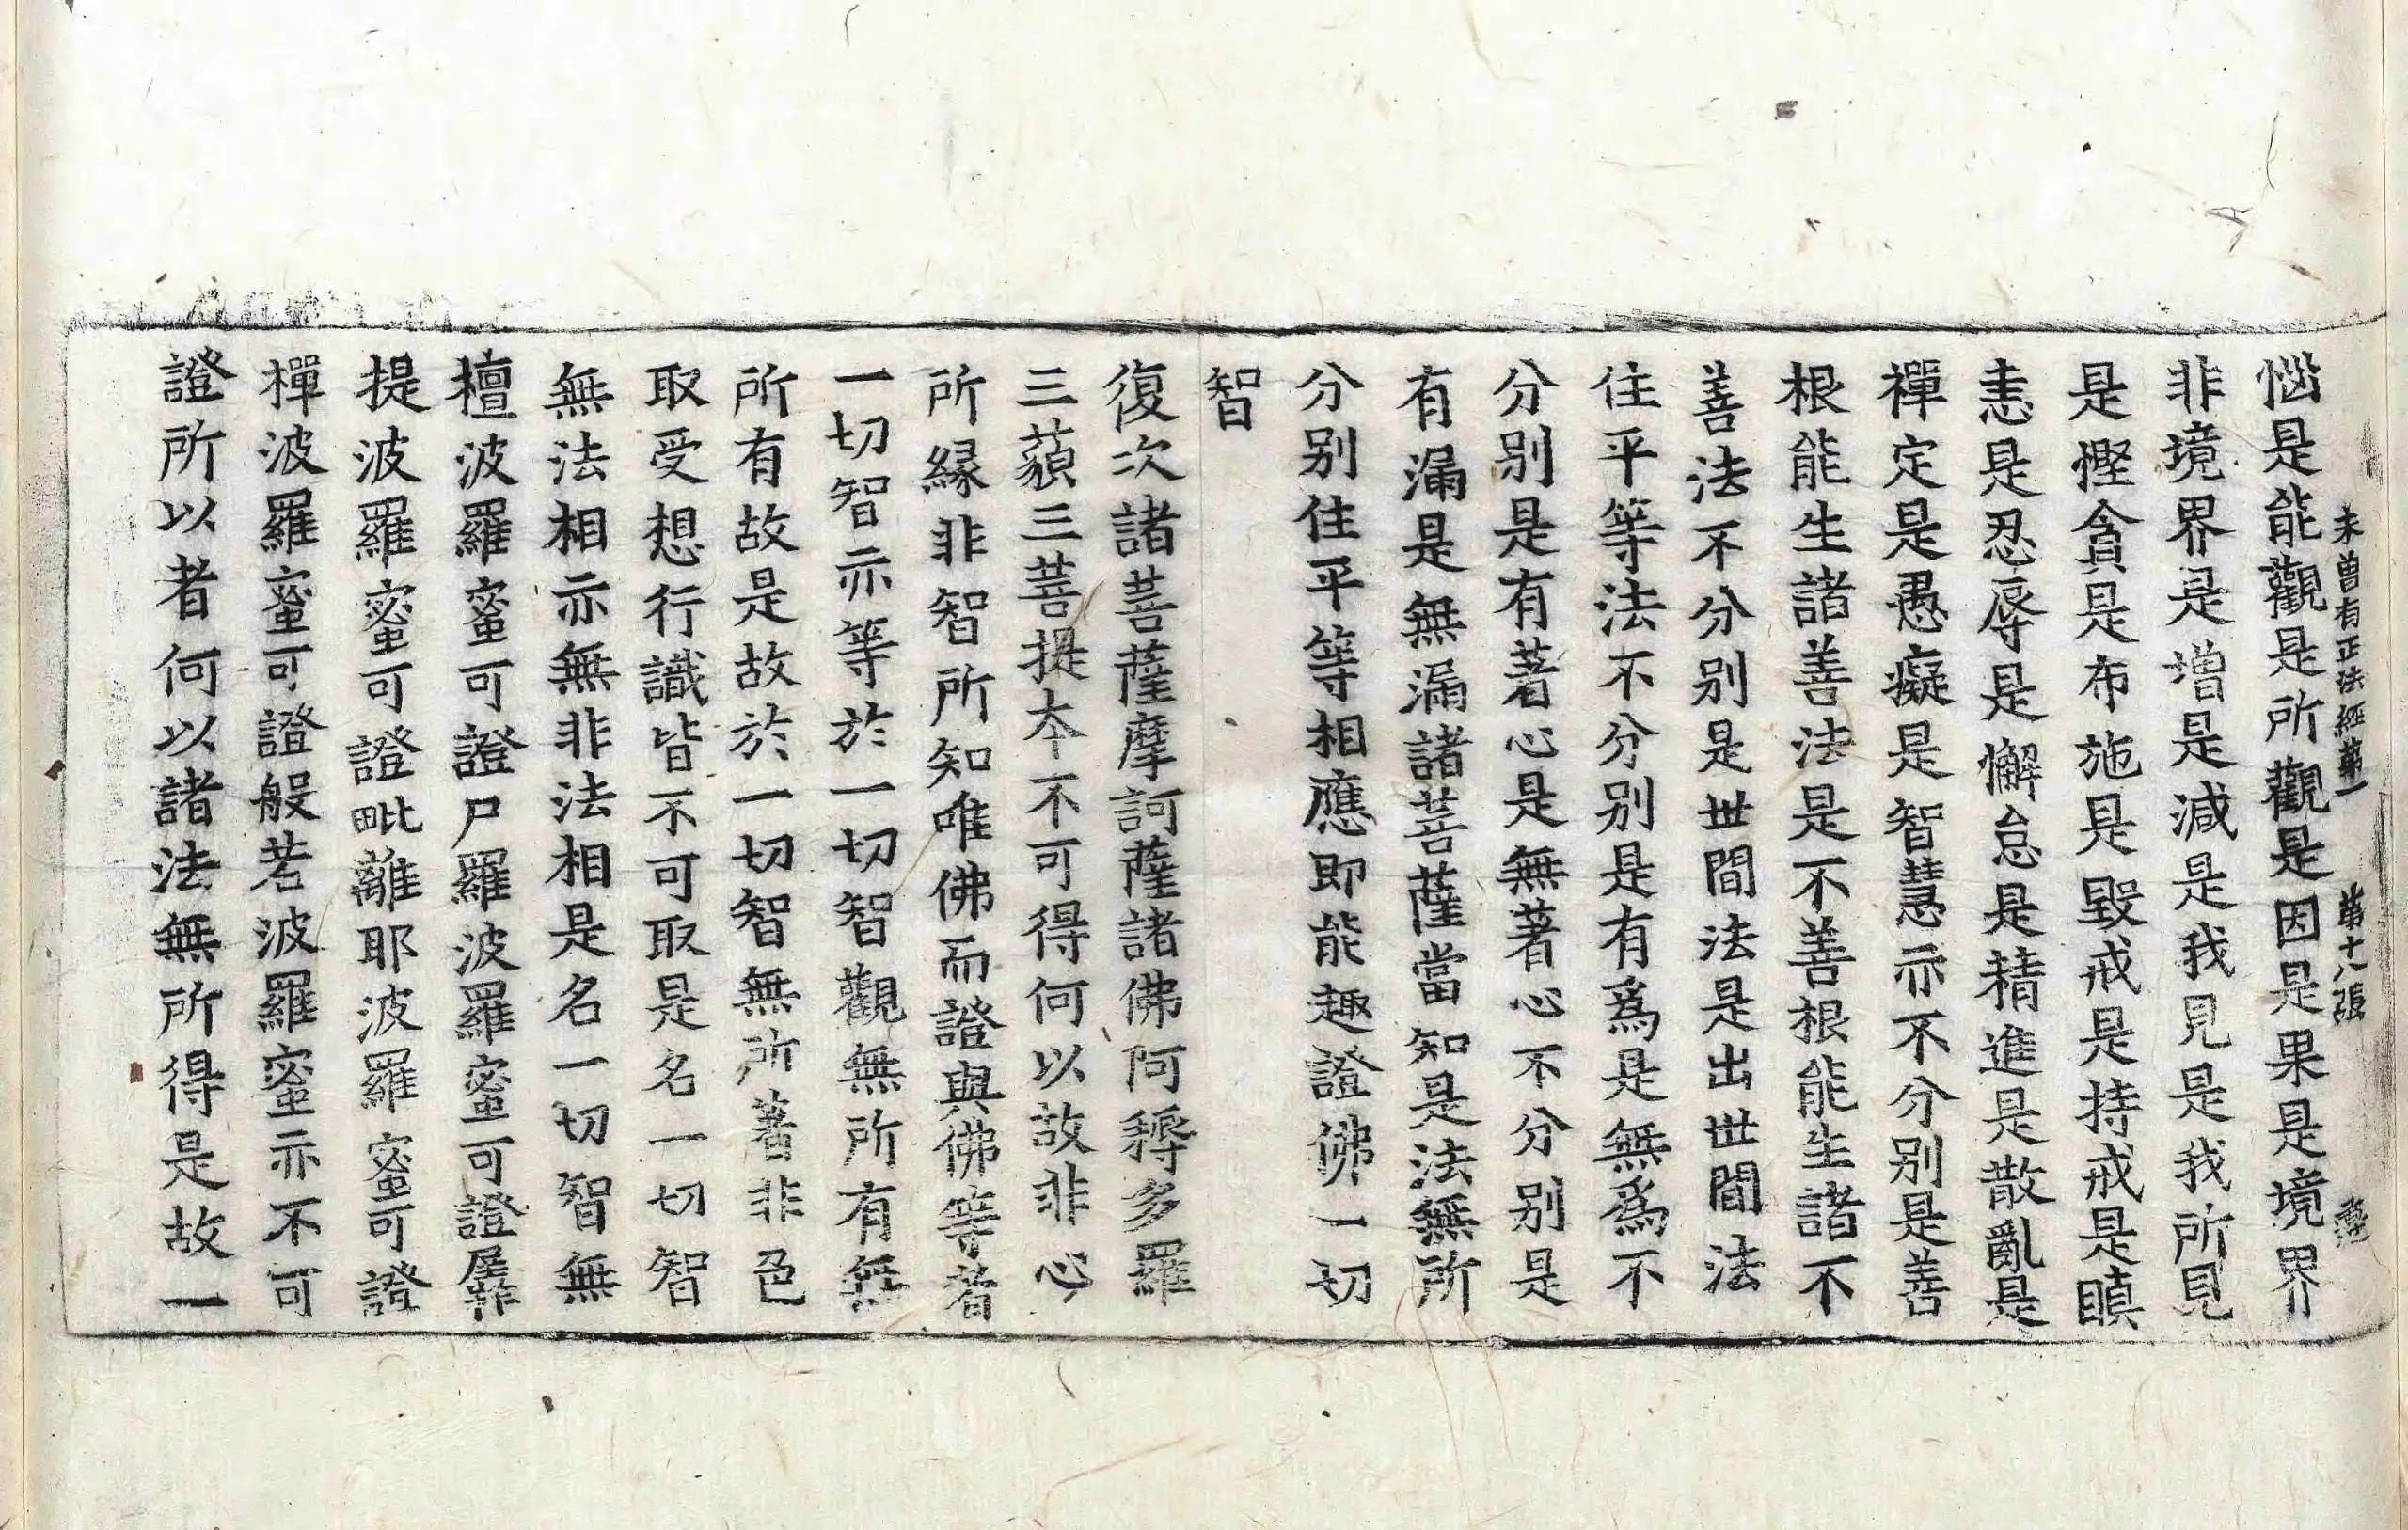 未曽有正法經第一 第十八張
惱是能觀是所觀是因是果是境界
非境界是增是減是我見是我所見
是慳貪是布施是毀戒是持戒是瞋
恚是忍辱是懈怠是精進是散亂是
禪定是愚癡是智慧亦不分別是善
根能生諸善法是不善根能生諸不
善法不分別是世間法是出世間法
住平等法不分別是有爲是無爲不
分別是有著心是無著心不分別是
有漏是無漏諸菩薩當知是法無所
分別住平等相應即能趣證佛一切
智
復次諸菩薩摩訶薩諸佛阿耨多羅
三藐三菩提本不可得何以故非心
所緣非智所知唯佛而證與佛等者
一切智亦等於一切智觀無所有無
所有故是故於一切智無所著非色
取受想行識皆不可取是名一切智
無法相亦無非法相是名一切智無
檀波羅蜜可證尸羅波羅蜜可證羼
提波羅蜜可證毗離耶波羅蜜可證
禪波羅蜜可證般若波羅蜜亦不可
證所以者何以諸法無所得是故一